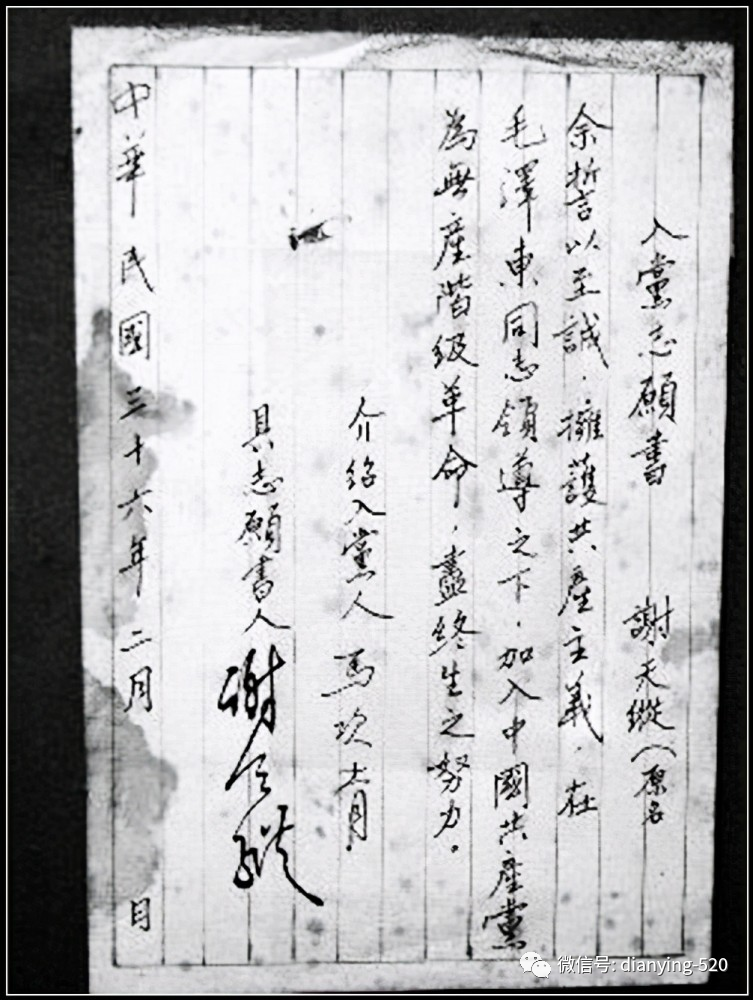 入黨志願書 謝天縱（原名
余誓以至誠，擁護共產主義，在
毛澤東同志領導之下，加入中國共產黨
為無產階級革命，盡終生之努力。
介紹入黨人 馬次青
具志願書人 謝天縱
中華民國三十六年二月 日
微信号: dianying-520